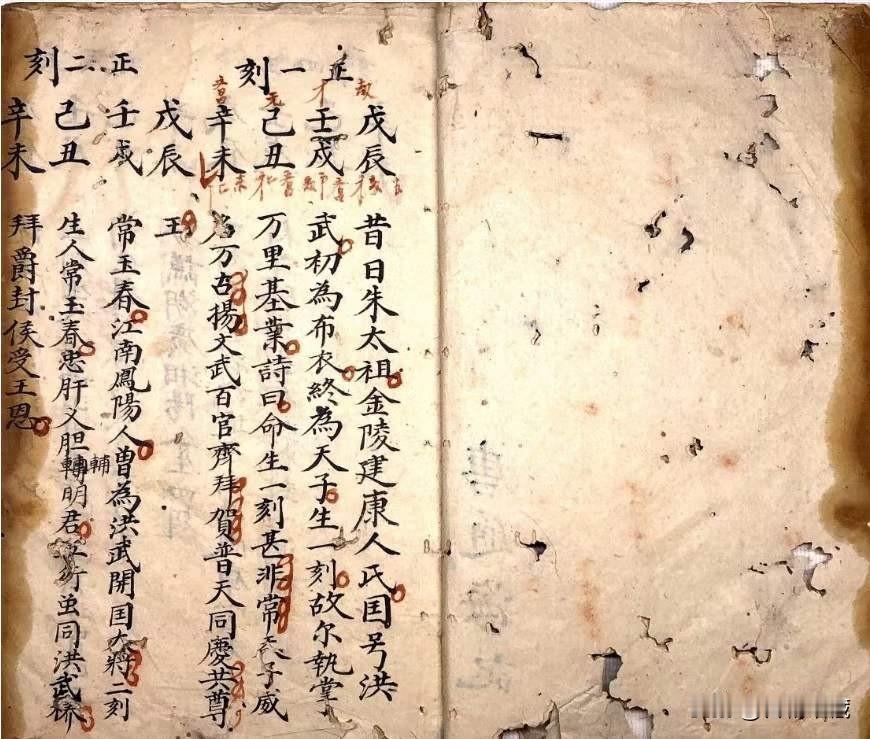 正一刻
戊辰
昔日朱太祖金陵建康人氏囯号洪
壬戌
武初為布衣終為天子生一刻故尔執掌
己丑
万里基業詩曰命生一刻甚非常天子威
辛未
為万古揚文武百官齊拜賀普天同慶共尊
戊辰
王
正二刻
壬戌
常玉春江南鳳陽人曾為洪武開囯大将二刻
己丑
生人常玉春忠肝义胆轉輔明君同洪武
辛未
拜爵封侯受王恩